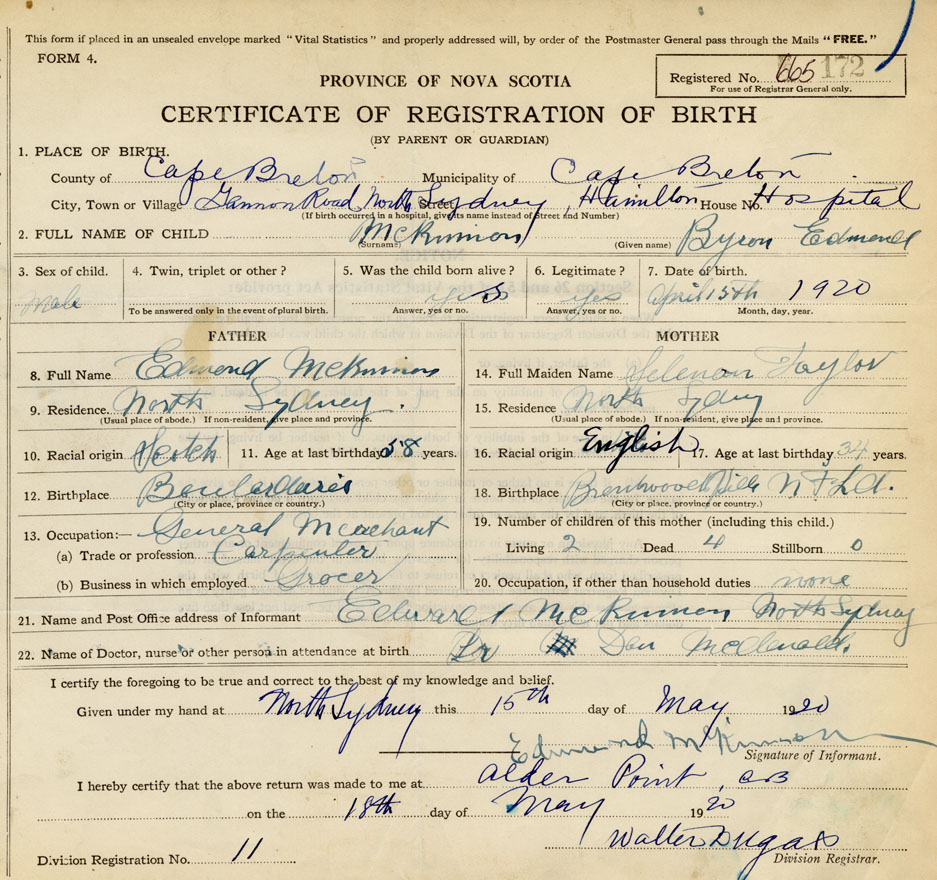 This form if placed in an unsealed envelope marked "Vital Statistics" and properly addressed will, by order of the Postmaster General pass through the Mails "FREE."
FORM 4.
Registered No. 665 172
For use of Registrar General only.
PROVINCE OF NOVA SCOTIA
CERTIFICATE OF REGISTRATION OF BIRTH
(BY PARENT OR GUARDIAN)
1. PLACE OF BIRTH.
County of Cape Breton Municipality of Cape Breton
City, Town or Village Gannon Road, North Sydney Street Hamilton House No. Hospital
(If birth occurred in a hospital, give its name instead of Street and Number)
2. FULL NAME OF CHILD McKinnon Byron Edmond
(Surname) (Given name)
3. Sex of child. 4. Twin, triplet or other? 5. Was the child born alive? 6. Legitimate? 7. Date of birth.
Male yes yes April 15th 1920
To be answered only in event of plural birth. Answer, yes or no. Answer, yes or no. Month, day, year.
FATHER MOTHER
8. Full Name Edmond McKinnon 14. Full Maiden Name Taylor
9. Residence. North Sydney. 15. Residence North Sydney
(Usual place of abode.) If non-resident, give place and province. (Usual place of abode.) If non-resident, give place and province.
10. Racial origin Scotch 11. Age at last birthday 58 years. 16. Racial origin English 17. Age at last birthday 34 years.
12. Birthplace Boulardarie 18. Birthplace Nfld.
(City or place, province or country.) (City or place, province or country.)
13. Occupation:— General Merchant 19. Number of children of this mother (including this child.)
(a) Trade or profession Carpenter Living 2 Dead 4 Stillborn 0
(b) Business in which employed Grocer 20. Occupation, if other than household duties none
21. Name and Post Office address of Informant Edward McKinnon North Sydney
22. Name of Doctor, nurse or other person in attendance at birth Dr Dan McDonald.
I certify the foregoing to be true and correct to the best of my knowledge and belief.
Given under my hand at North Sydney this 15th day of May 1920
Edmond McKinnon
Signature of Informant.
I hereby certify that the above return was made to me at Alder Point, CB
on the 18th day of May 1920
Walter Dugas
Division Registration No. 11 Division Registrar.